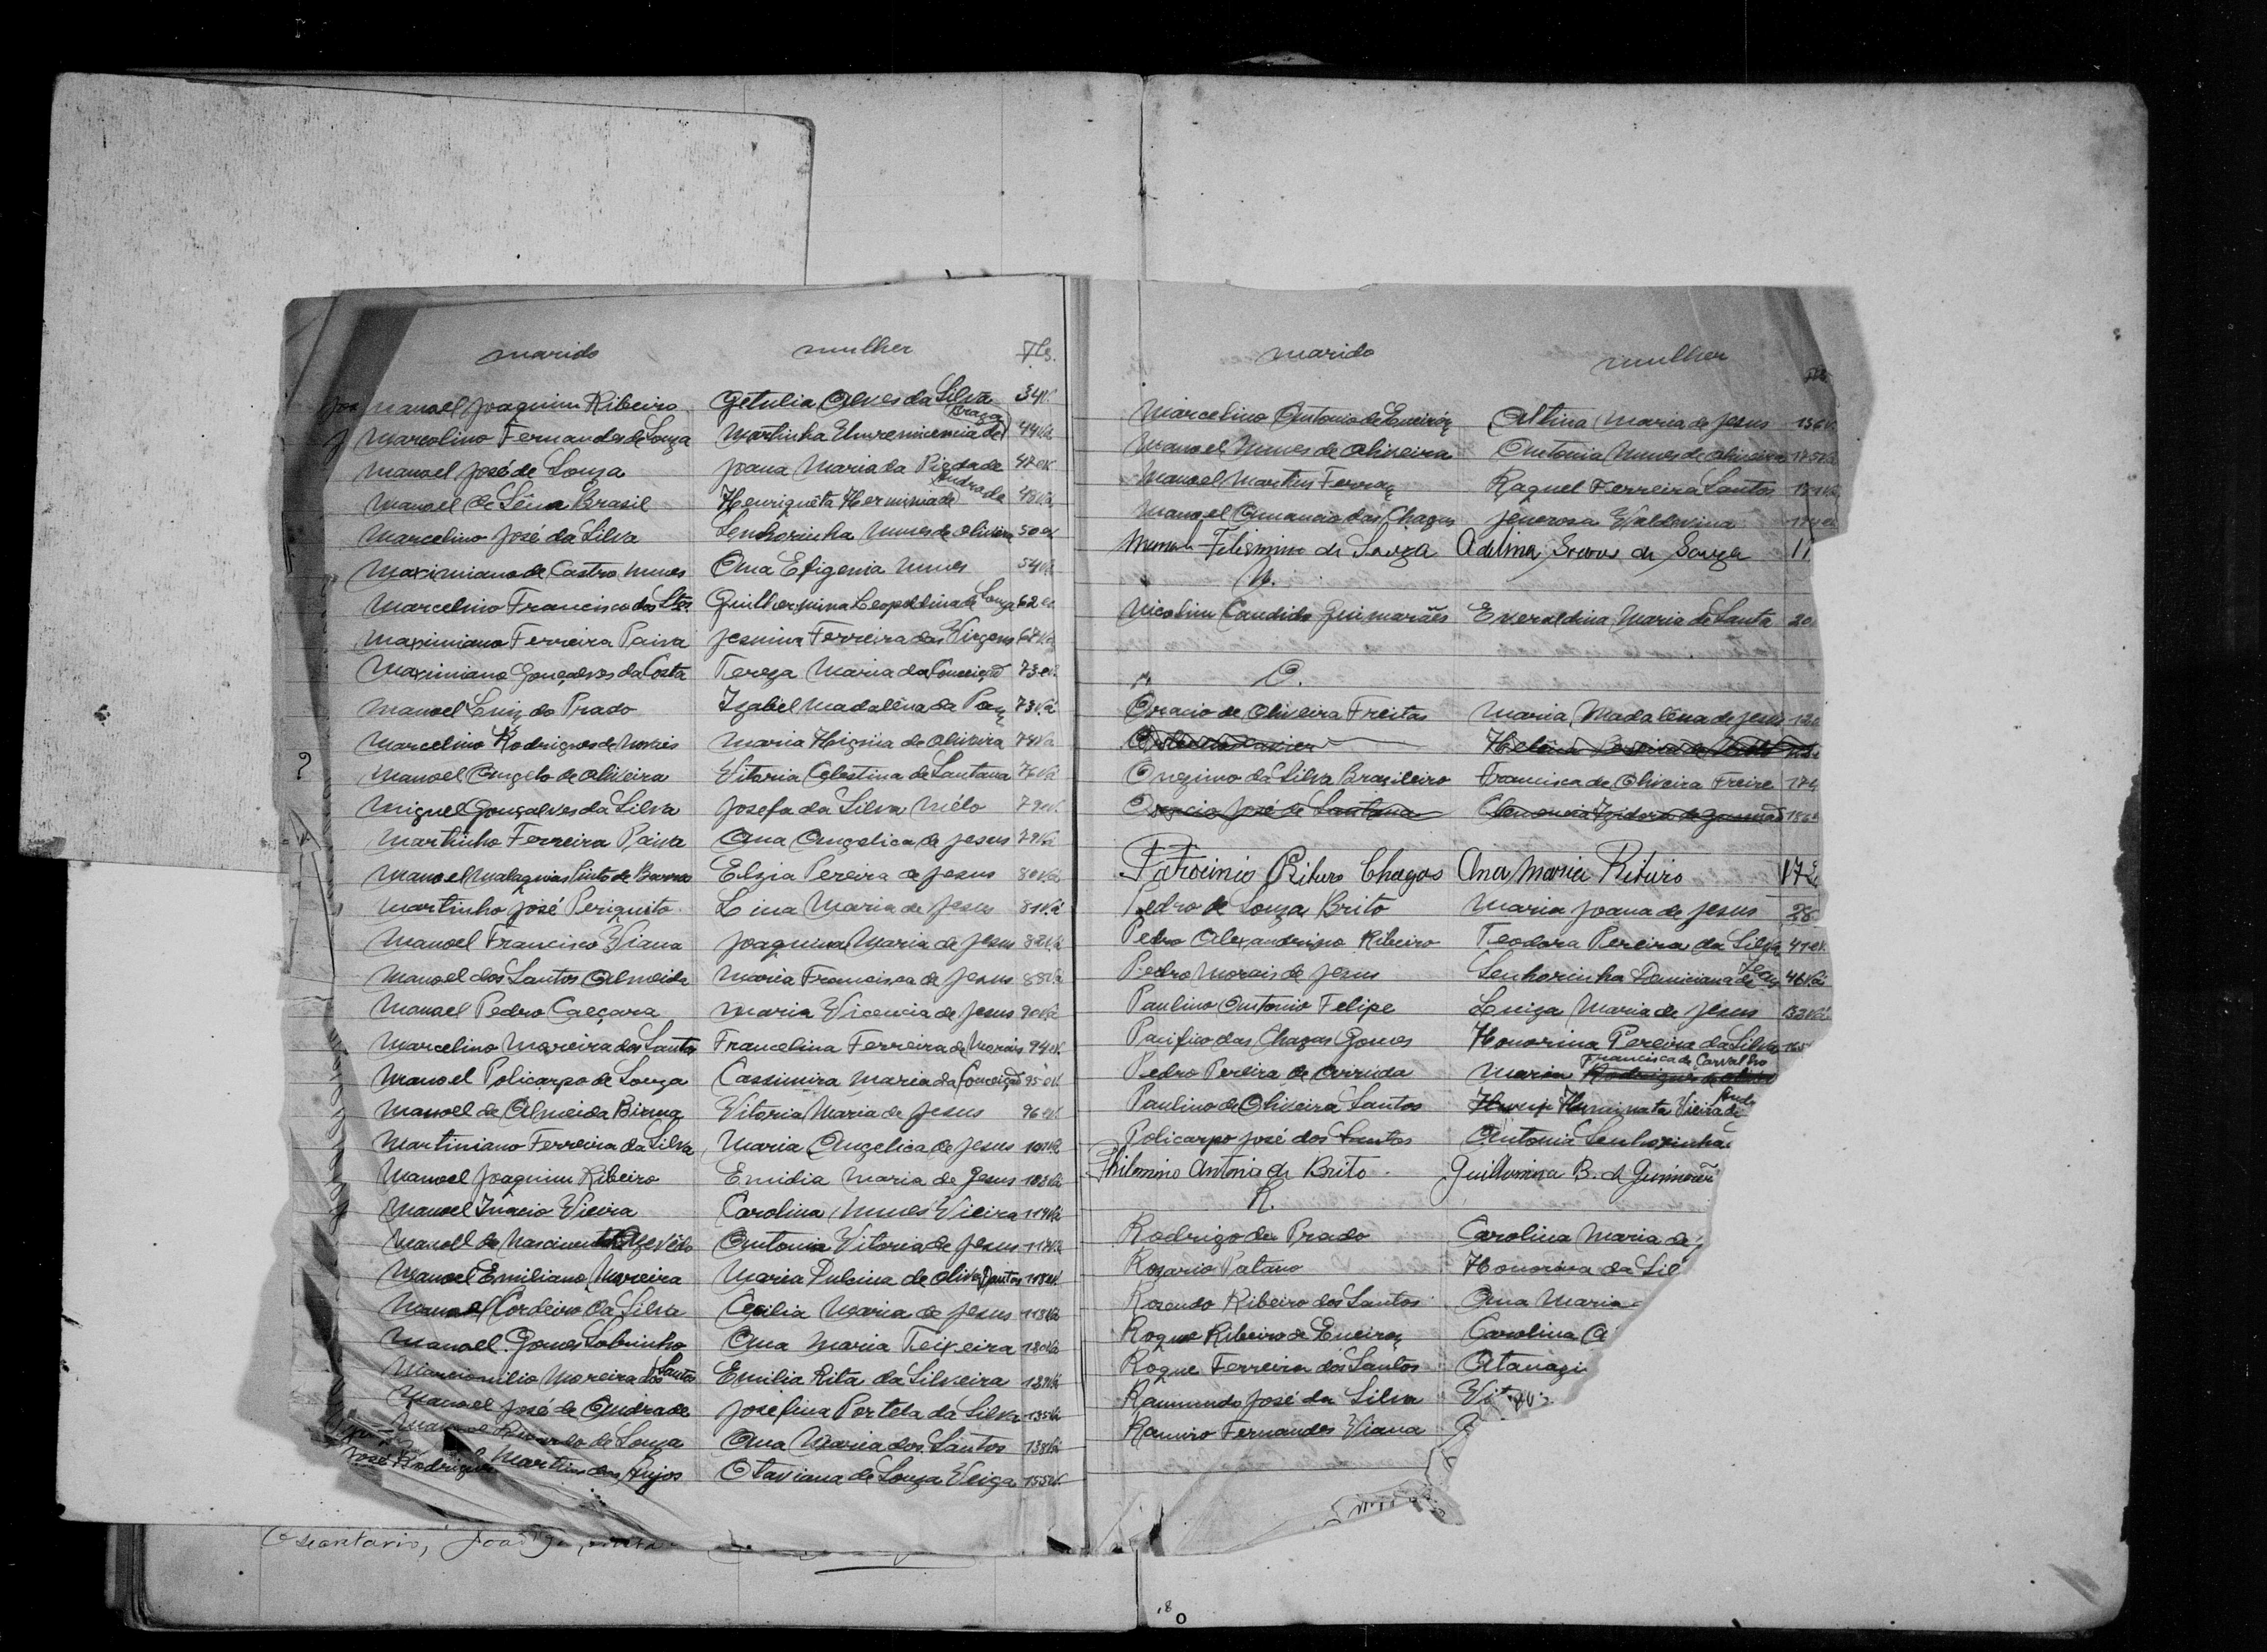 marido mulher Fls.
Manoel Joaquim Ribeiro Getulia Alves da Silva 34V.
Marcolino Fernandes de Souza Martinha de Braga 44Vá
Manoel José de Souza Joana Maria da Piedade 47
Manoel de Sêna Brasil Henriquêta Herminia de Andrade 48Vá
Marcelino José da Silva Senhorinha Nunes de Oliveira 50
Maximiano de Castro Nunes Ana Efigenia Nunes 54
Marcelino Francisco dos Stos Guilhermina Leopoldina de Souza 62
Maximiano Ferreira Paiva Jesuina Ferreira das Virgens 67
Maximiano Gonçalves da Costa Tereza Maria da Conceição 73
Manoel Luiz do Prado Izabel Madalêna da Paz 73Vá
Marcelino Rodrigues de Novais Maria Higinia de Oliveira 74Vá
? Manoel Angelo de Oliveira Vitoria Celestina de Santana 76Vá
Miguel Gonçalves da Silva Josefa da Silva Mélo 79
Martinho Ferreira Paiva Ana Angelica de Jesus 79Vá
Manoel Malaquias Pinto de Elzia Pereira de Jesus 80Vá
Martinho José Periquito Lina Maria de Jesus 81Vá
Manoel Francisco Viana Joaquina Maria de Jesus 82Vá
Manoel dos Santos Almeida Maria Francisca de Jesus 88Vá
Manoel Pedro Caeçara Maria Vicencia de Jesus 90Vá
Marcelino Moreira dos Santos Francelina Ferreira de Morais 94
Manoel Policarpo de Souza Cassimira Maria da Conceição 95
Manoel de Almeida Vitoria Maria de Jesus 96
Martiniano Ferreira da Silva Maria Angelica de Jesus
Manoel Joaquim Ribeiro Emidia Maria de Jesus 103Vá
Manoel Inacio Vieira Carolina Nunes Vieira 114Vá
Manoel do Nascimento Azevêdo Antonia Vitoria de Jesus 117Vá
Manoel Emiliano Moreira Maria Dulcina de Dantas 118
Manoel Cordeiro da Silva Cecilia Maria de Jesus
Manoel Gomes Sobrinho Ana Maria Teixeira
Marcionilio Moreira dos Santos Emilia Rita da Silveira
Manoel José de Andrade Josefina Portela da Silva 135Vá
Manoel Ricardo de Souza Ana Maria dos Santos 138Vá
José Rodrigues Martins dos Anjos Otaviana de Souza Veiga 155
marido mulher
Marcelino Antonio de Queiróz Altina Maria de Jesus 156
Manoel Nunes de Oliveira Antonia Nunes de Oliveira 175
Manoel Martins Ferraz Raquel Ferreira Santos
Manoel Amancio das Chagas Jenerosa Valdevina
Filismino de Souza Adelina de Souza 11
N.
Nicolim Candido Guimarães Everaldina Maria de Santa 20
" O.
Oracio de Oliveira Freitas Maria Madalêna de Jesus 120
Xavier
Onezimo da Silva Brazileiro Francisca de Oliveira Freire 174
José de Santana Izidora de
Patrocinio Rituro Chagas Ana Maria Rituro 172
Pedro de Souza Brito Maria Joana de Jesus 28
Pedro Alexandrino Ribeiro Teodora Pereira da Silva 41
Pedro Morais de Jesus Senhorinha de 46Vá
Paulino Antonio Felipe Luiza Maria de Jesus
Pacifico das Chagas Gomes Honorina Pereira da Silva 165
Pedro Pereira de Arruda Maria Francisca de Carvalho
Paulino de Oliveira Santos Vieira de
Policarpo José dos Santos Antonia Senhorinha
Philomino Antonio de Brito Guilhermina B. de
R.
Rodrigo do Prado Carolina Maria de
Rosario Patano Honorina da Sil
Rozendo Ribeiro dos Santos Ana Maria
Roque Ribeiro de Queiroz Carolina
Roque Ferreira dos Santos Atanazi
Raimundo José da Silva
Ramiro Fernandes Viana
O escriptario, João